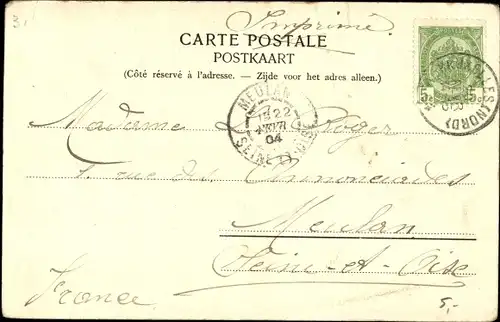 3.
Imprimé
CARTE POSTALE
POSTKAART
(Côté réservé à l'adresse. — Zijde voor het adres alleen.)
MEULAN
22
04
SEINE ET OISE
5 5
(NORD)
Madame Roger
rue des Annonciades
Meulan
Seine-et-Oise
France
5,-